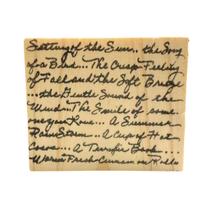 Setting of the Sun... the Song
of a Bird... The Crisp Feeling
of Fall and the Soft Breeze
... the Gentle Sound of the
Wind... The Smile of some
one you Love... A Summer
Rain Storm... A Cup of Hot
Cocoa... A Terrific Book...
Warm Fresh Cinnamon Rolls